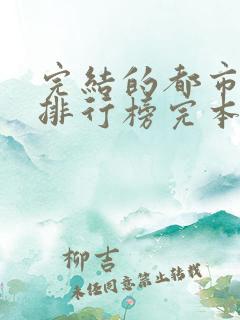 完結的都市
排行榜完本
柳吉
未经同意禁止转载